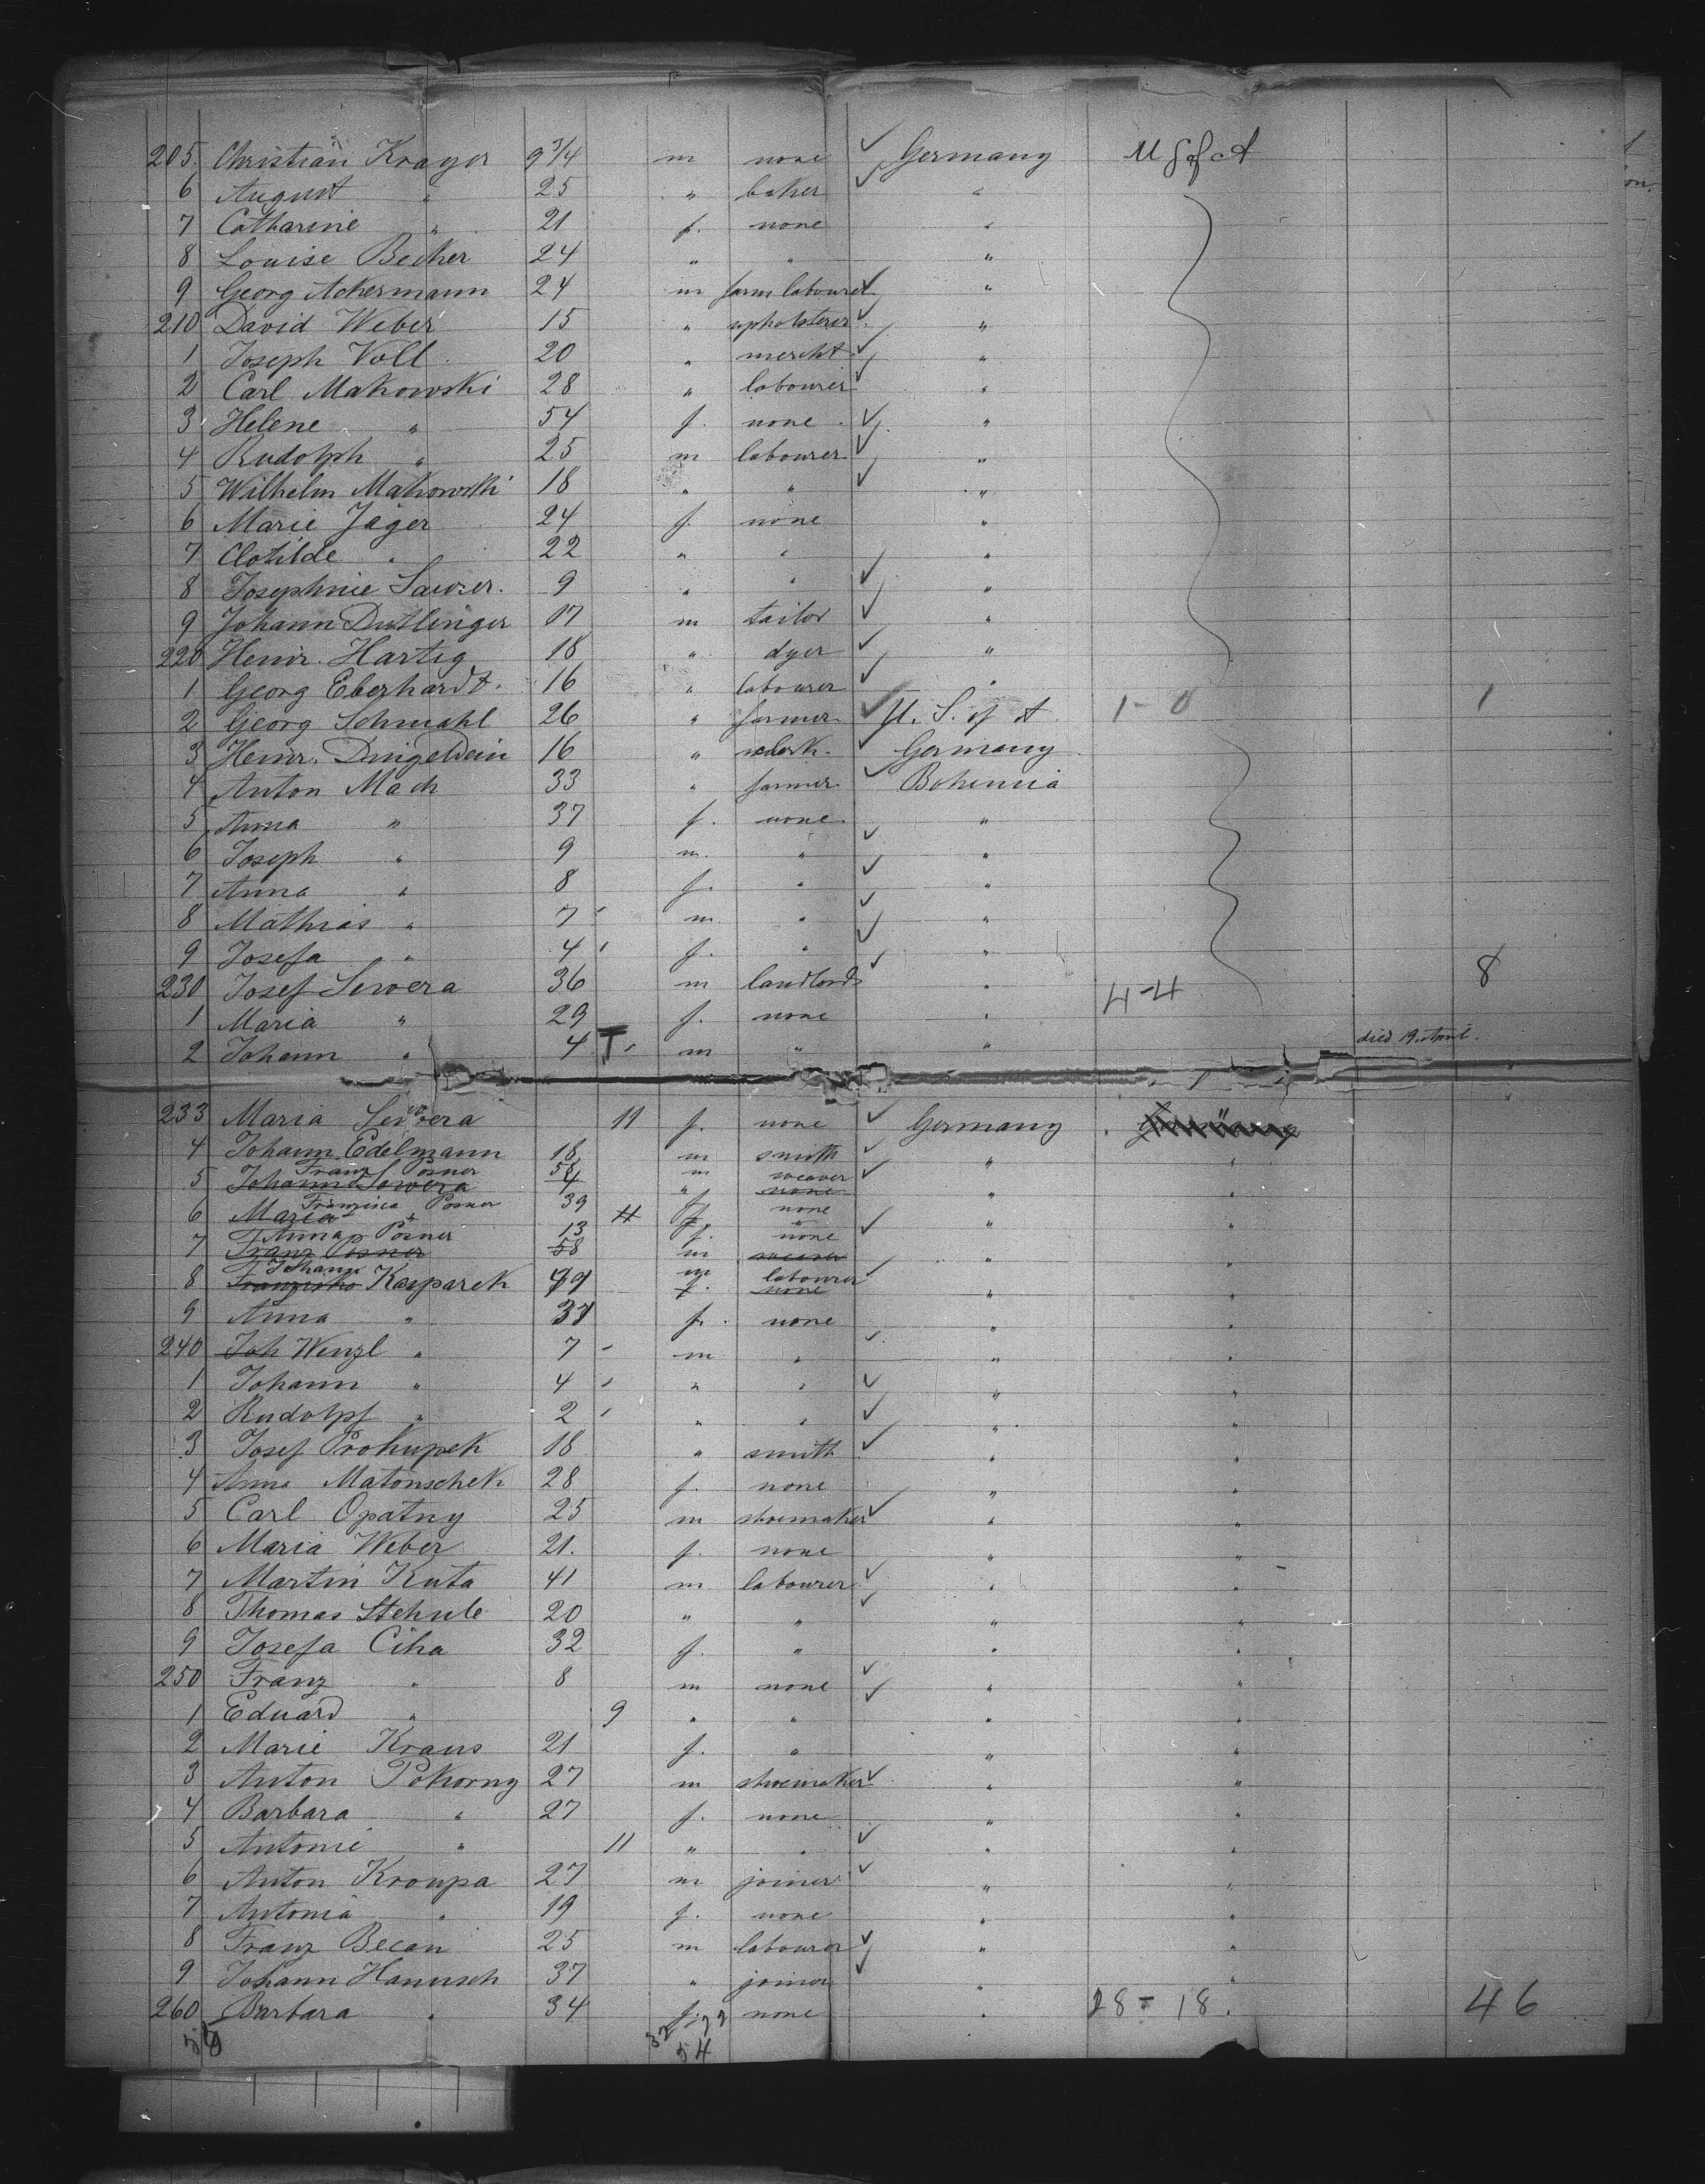 205 Christian Krayer 9 3/4 m none ✓ Germany U S of A
6 August " 25 " baker ✓ "
7 Catharine " 21 f. none "
8 Louise Becker 24 " " "
9 Georg Ackermann 24 m farm labourer ✓ "
210 David Weber 15 " upholsterer ✓ "
1 Joseph Voll 20 " mercht. ✓ "
2 Carl Makowski 28 " labourer ✓ "
3 Helene " 54 f. none ✓ "
4 Rudolph " 25 m labourer ✓ "
5 Wilhelm Makowski 18 " " ✓ "
6 Marie Jäger 24 f. none "
7 Clotilde " 22 " " "
8 Josephine 9 " " ✓ "
9 Johann Dutlinger 17 m tailor ✓ "
220 Heinr. Hartig 18 " dyer ✓ "
1 Georg Eberhardt. 16 " labourer ✓ "
2 Georg Schmahl 26 " farmer ✓ U. S. of A 1-0 1
3 Heinr. Dingeldein 16 " clerk. ✓ Germany
4 Anton Mach 33 " farmer ✓ Bohemia
5 Anna " 37 f. none "
6 Joseph " 9 m. " ✓ "
7 Anna " 8 f. " ✓ "
8 Mathias " 7 m " ✓ "
9 Josefa " 4 f. " ✓ "
230 Josef Sewera 36 m landlord ✓ " 4-4 8
1 Maria " 29 f. none "
2 Johann " 4 T m " " died 19. April.
233 Maria Sewera 11 f. none ✓ Germany "
4 Johann Edelmann 18 m smith ✓ " "
Franz Posner 58 m weaver
5 Johann Sewera 4 " none ✓ " "
Franzisca Posner 39 f none
6 Maria " 11 f. " " "
Anna Posner 13 f. none ✓
7 Franz Posner 58 m weaver " "
Johann m labourer
8 Franziska Kasparek f. none ✓ " "
9 Anna " 37 f. none " "
240 Joh Wenzl " 7 m " ✓ " "
1 Johann " 4 " " ✓ " "
2 Rudolpf " 2 " " ✓ " "
3 Josef Prokupek 18 " smith ✓ " "
4 Anna Matonschek 28 f. none " "
5 Carl Opatny 25 m shoemaker ✓ " "
6 Maria Weber 21. f. none " "
7 Martin Kuta 41 m labourer ✓ " "
8 Thomas Stehule 20 " " ✓ " "
9 Josefa Ciha 32 f. " " "
250 Franz " 8 m none ✓ " "
1 Eduard " 9 " " ✓ " "
2 Marie Kraus 21 f. " " "
3 Anton Pokorny 27 m shoemaker ✓ " "
4 Barbara " 27 f. none " "
5 Antonie " 11 " " ✓ " "
6 Anton Kroupa 27 m joiner ✓ " "
7 Antonia " 19 f. none " "
8 Franz Becan 25 m labourer ✓ " "
9 Johann Hanusch 37 " joiner ✓ " "
260 Barbara " 34 f. none " 28-18. 46
32 22
54